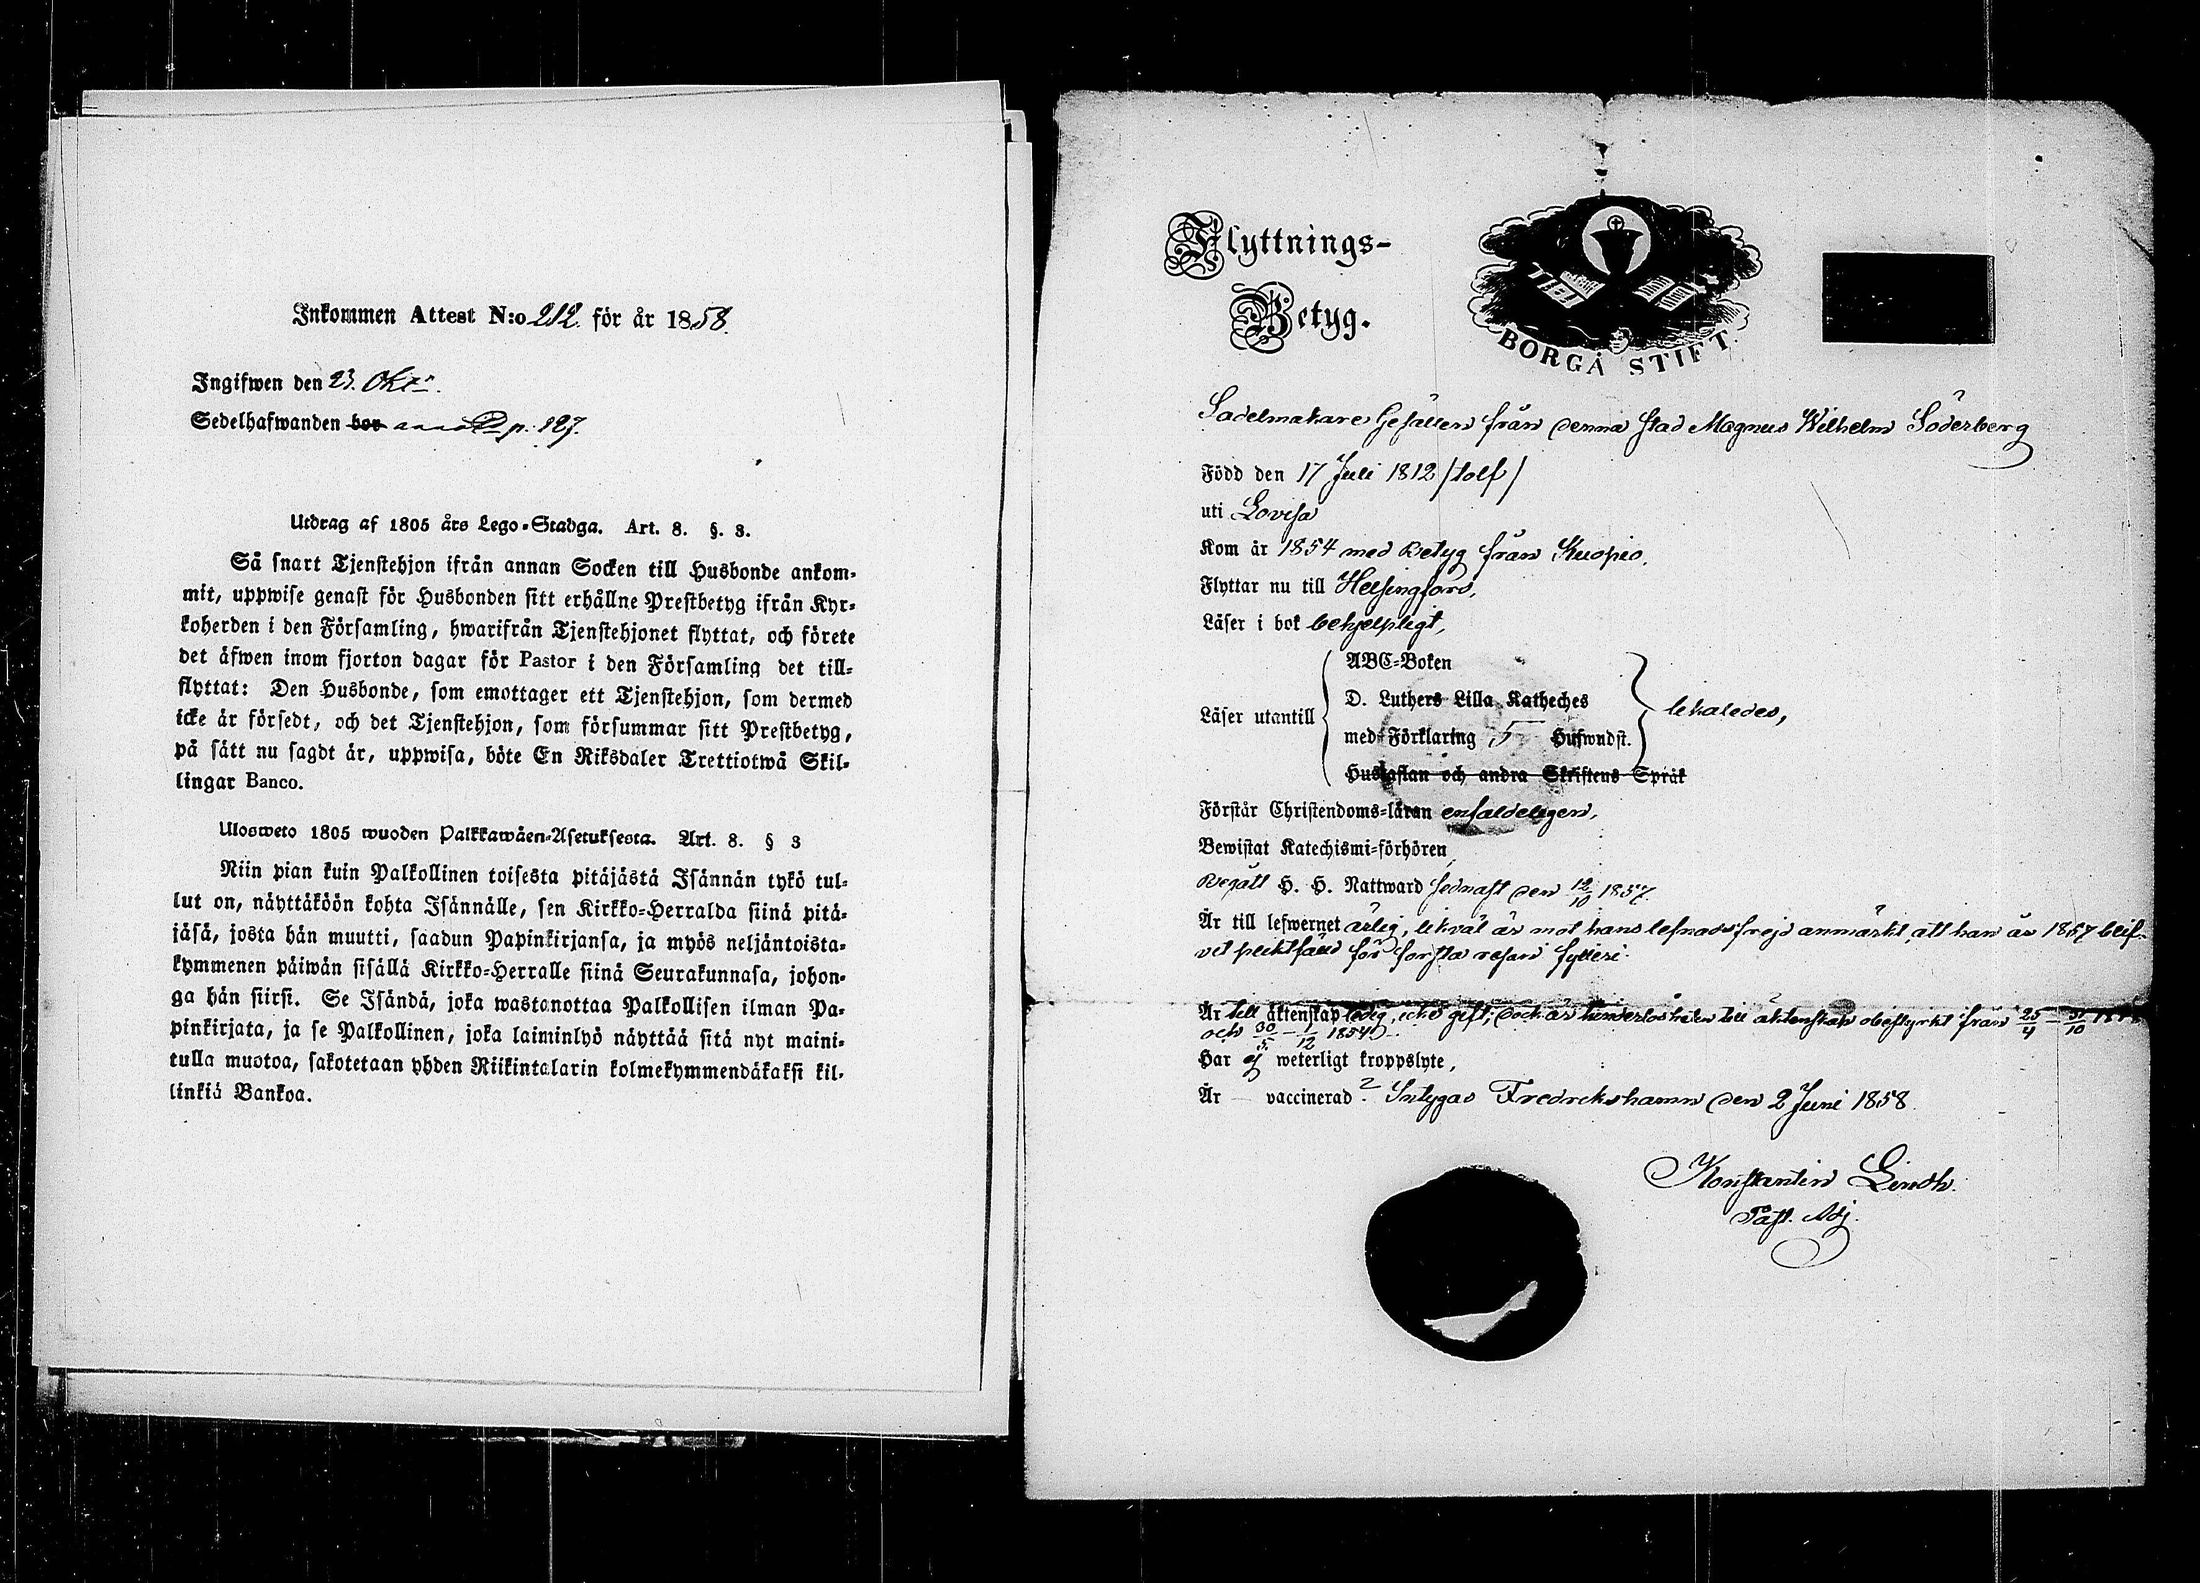 Inkommen Attest N:o 212. för år 1858.
Ingifwen den 23. Oktr.
Sedelhafwanden bor p. 127.
Utdrag af 1805 års Lego-Stadga. Art. 8. §. 3.
Så snart Tjenstehjon ifrån annan Socken till Husbonde ankom-
mit, uppwise genast för Husbonden sitt erhållne Prestbetyg ifrån Kyr-
koherden i den Församling, hwarifrån Tjenstehjonet flyttat, och förete
det äfwen inom fjorton dagar för Pastor i den Församling det till-
flyttat: Den Husbonde, som emottager ett Tjenstehjon, som dermed
icke är försedt, och det Tjenstehjon, som försummar sitt Prestbetyg,
på sätt nu sagdt är, uppwisa, böte En Riksdaler Trettiotwå Skil-
lingar Banco.
Ulosweto 1805 wuoden Palkkawäen-Asetuksesta. Art. 8. § 3
Niin pian kuin Palkollinen toisesta pitäjästä Isännän tykö tul-
lut on, näyttäköön kohta Isännälle, sen Kirkko-Herralda siinä pitä-
jäsä, josta hän muutti, saadun Papinkirjansa, ja myös neljäntoista-
kymmenen päiwän sisällä Kirkko-Herralle siinä Seurakunnasa, johon-
ga hän siirsi. Se Isändä, joka wastanottaa Palkollisen ilman Pa-
pinkirjata, ja se Palkollinen, joka laiminlyö näyttää sitä nyt maini-
tulla muotoa, sakotetaan yhden Riikintalarin kolmekymmendäkaksi kil-
linkiä Bankoa.
Flyttnings-
Betyg.
BORGÅ STIFT.
Sadelmakare Gesällen från denna stad Magnus Wilhelm Söderberg
Född den 17 Juli 1812 /tolf/
uti Lovisa
Kom år 1854 med Betyg från Kuopio.
Flyttar nu till Helsingfors,
Läser i bok behjelpligt,
ABC-Boken
D. Luthers Lilla Katheches
Läser utantill likaledes,
med Förklaring 5 Hufwudst.
Hustaflan och andra Skriftens Språk
Förstår Christendoms-läran enfaldeligen,
Bewistat Katechismi-förhören,
Begått H. H. Nattward sednast den 12/10 1857.
Är till lefwernet ärlig, likväl är mot hans lefnadsfrejd anmärkt, att han år 1857 blif-
vit pliktfälld för första resan fylleri.
Är till äktenskap ledig, icke gift, dock är hinderslösheten till äktenskap obestyrkt från 25/4 - 31/10
och 30/5 - 1/12 1854.
Har ej weterligt kroppslyte,
Är vaccinerad? Intygas Fredrikshamn den 2 Juni 1858.
Konstantin Lindh.
Past. Adj.